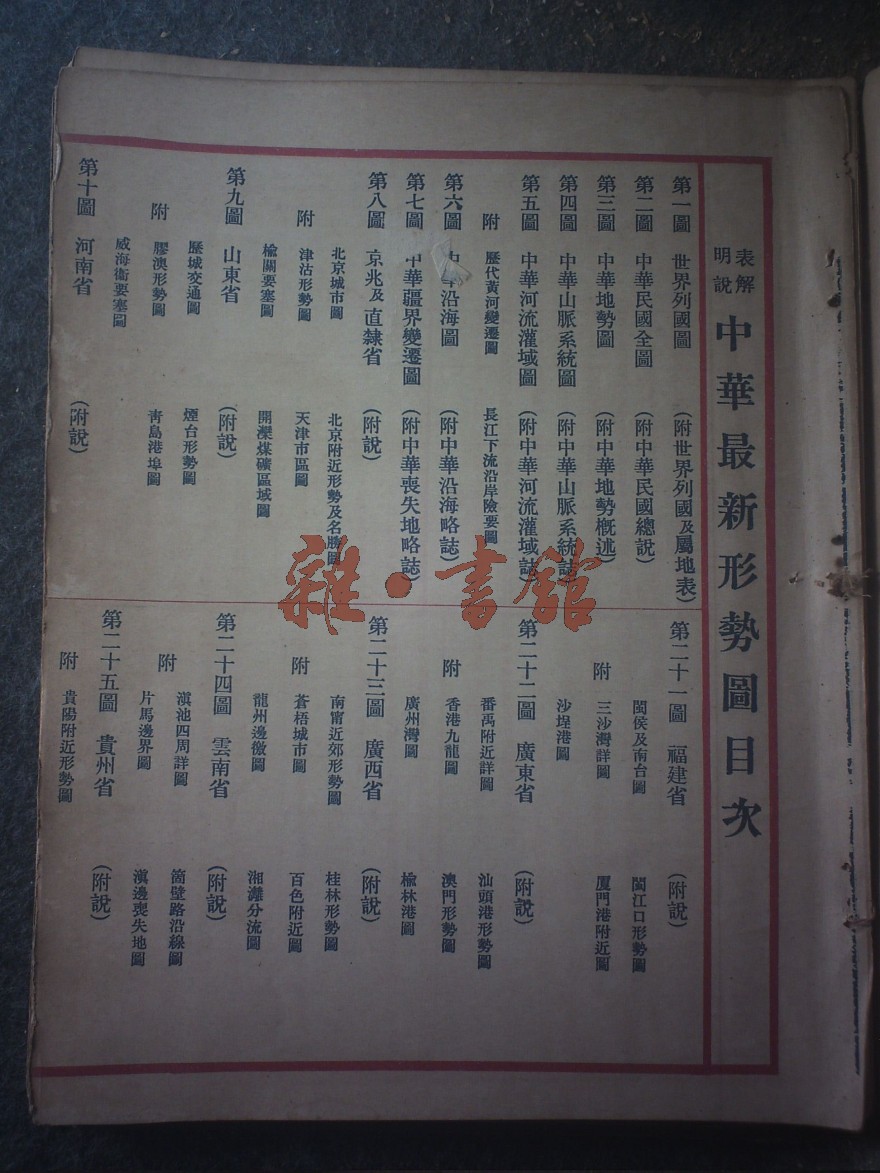 表解說明 中華最新形勢圖目次
第一圖 世界列國圖 (附世界列國及屬地表)
第二圖 中華民國全圖 (附中華民國總說)
第三圖 中華地勢圖 (附中華地勢概述)
第四圖 中華山脈系統圖 (附中華山脈系統誌)
第五圖 中華河流灌域圖 (附中華河流灌域誌)
附 歷代黃河變遷圖 長江下流沿岸險要圖
第六圖 中華沿海圖 (附中華沿海略誌)
第七圖 中華疆界變遷圖 (附中華喪失地略誌)
第八圖 京兆及直隸省 (附說)
北京城市圖 北京附近形勢及名勝圖
附 津沽形勢圖 天津市區圖
榆關要塞圖 開灤煤礦區域圖
第九圖 山東省 (附說)
歷城交通圖 煙台形勢圖
附 膠澳形勢圖 青島港埠圖
威海衞要塞圖
第十圖 河南省 (附說)
第二十一圖 福建省 (附說)
閩侯及南台圖 閩江口形勢圖
附 三沙灣詳圖 厦門港附近圖
沙埕港圖
第二十二圖 廣東省 (附說)
番禹附近詳圖 汕頭港形勢圖
附 香港九龍圖 澳門形勢圖
廣州灣圖 榆林港圖
第二十三圖 廣西省 (附說)
南甯近郊形勢圖 桂林形勢圖
附 蒼梧城市圖 百色附近圖
龍州邊徼圖 湘灕分流圖
第二十四圖 雲南省 (附說)
附 滇池四周詳圖 箇壁路沿線圖
片馬邊界圖 滇邊喪失地圖
第二十五圖 貴州省 (附說)
附 貴陽附近形勢圖
雜·書館